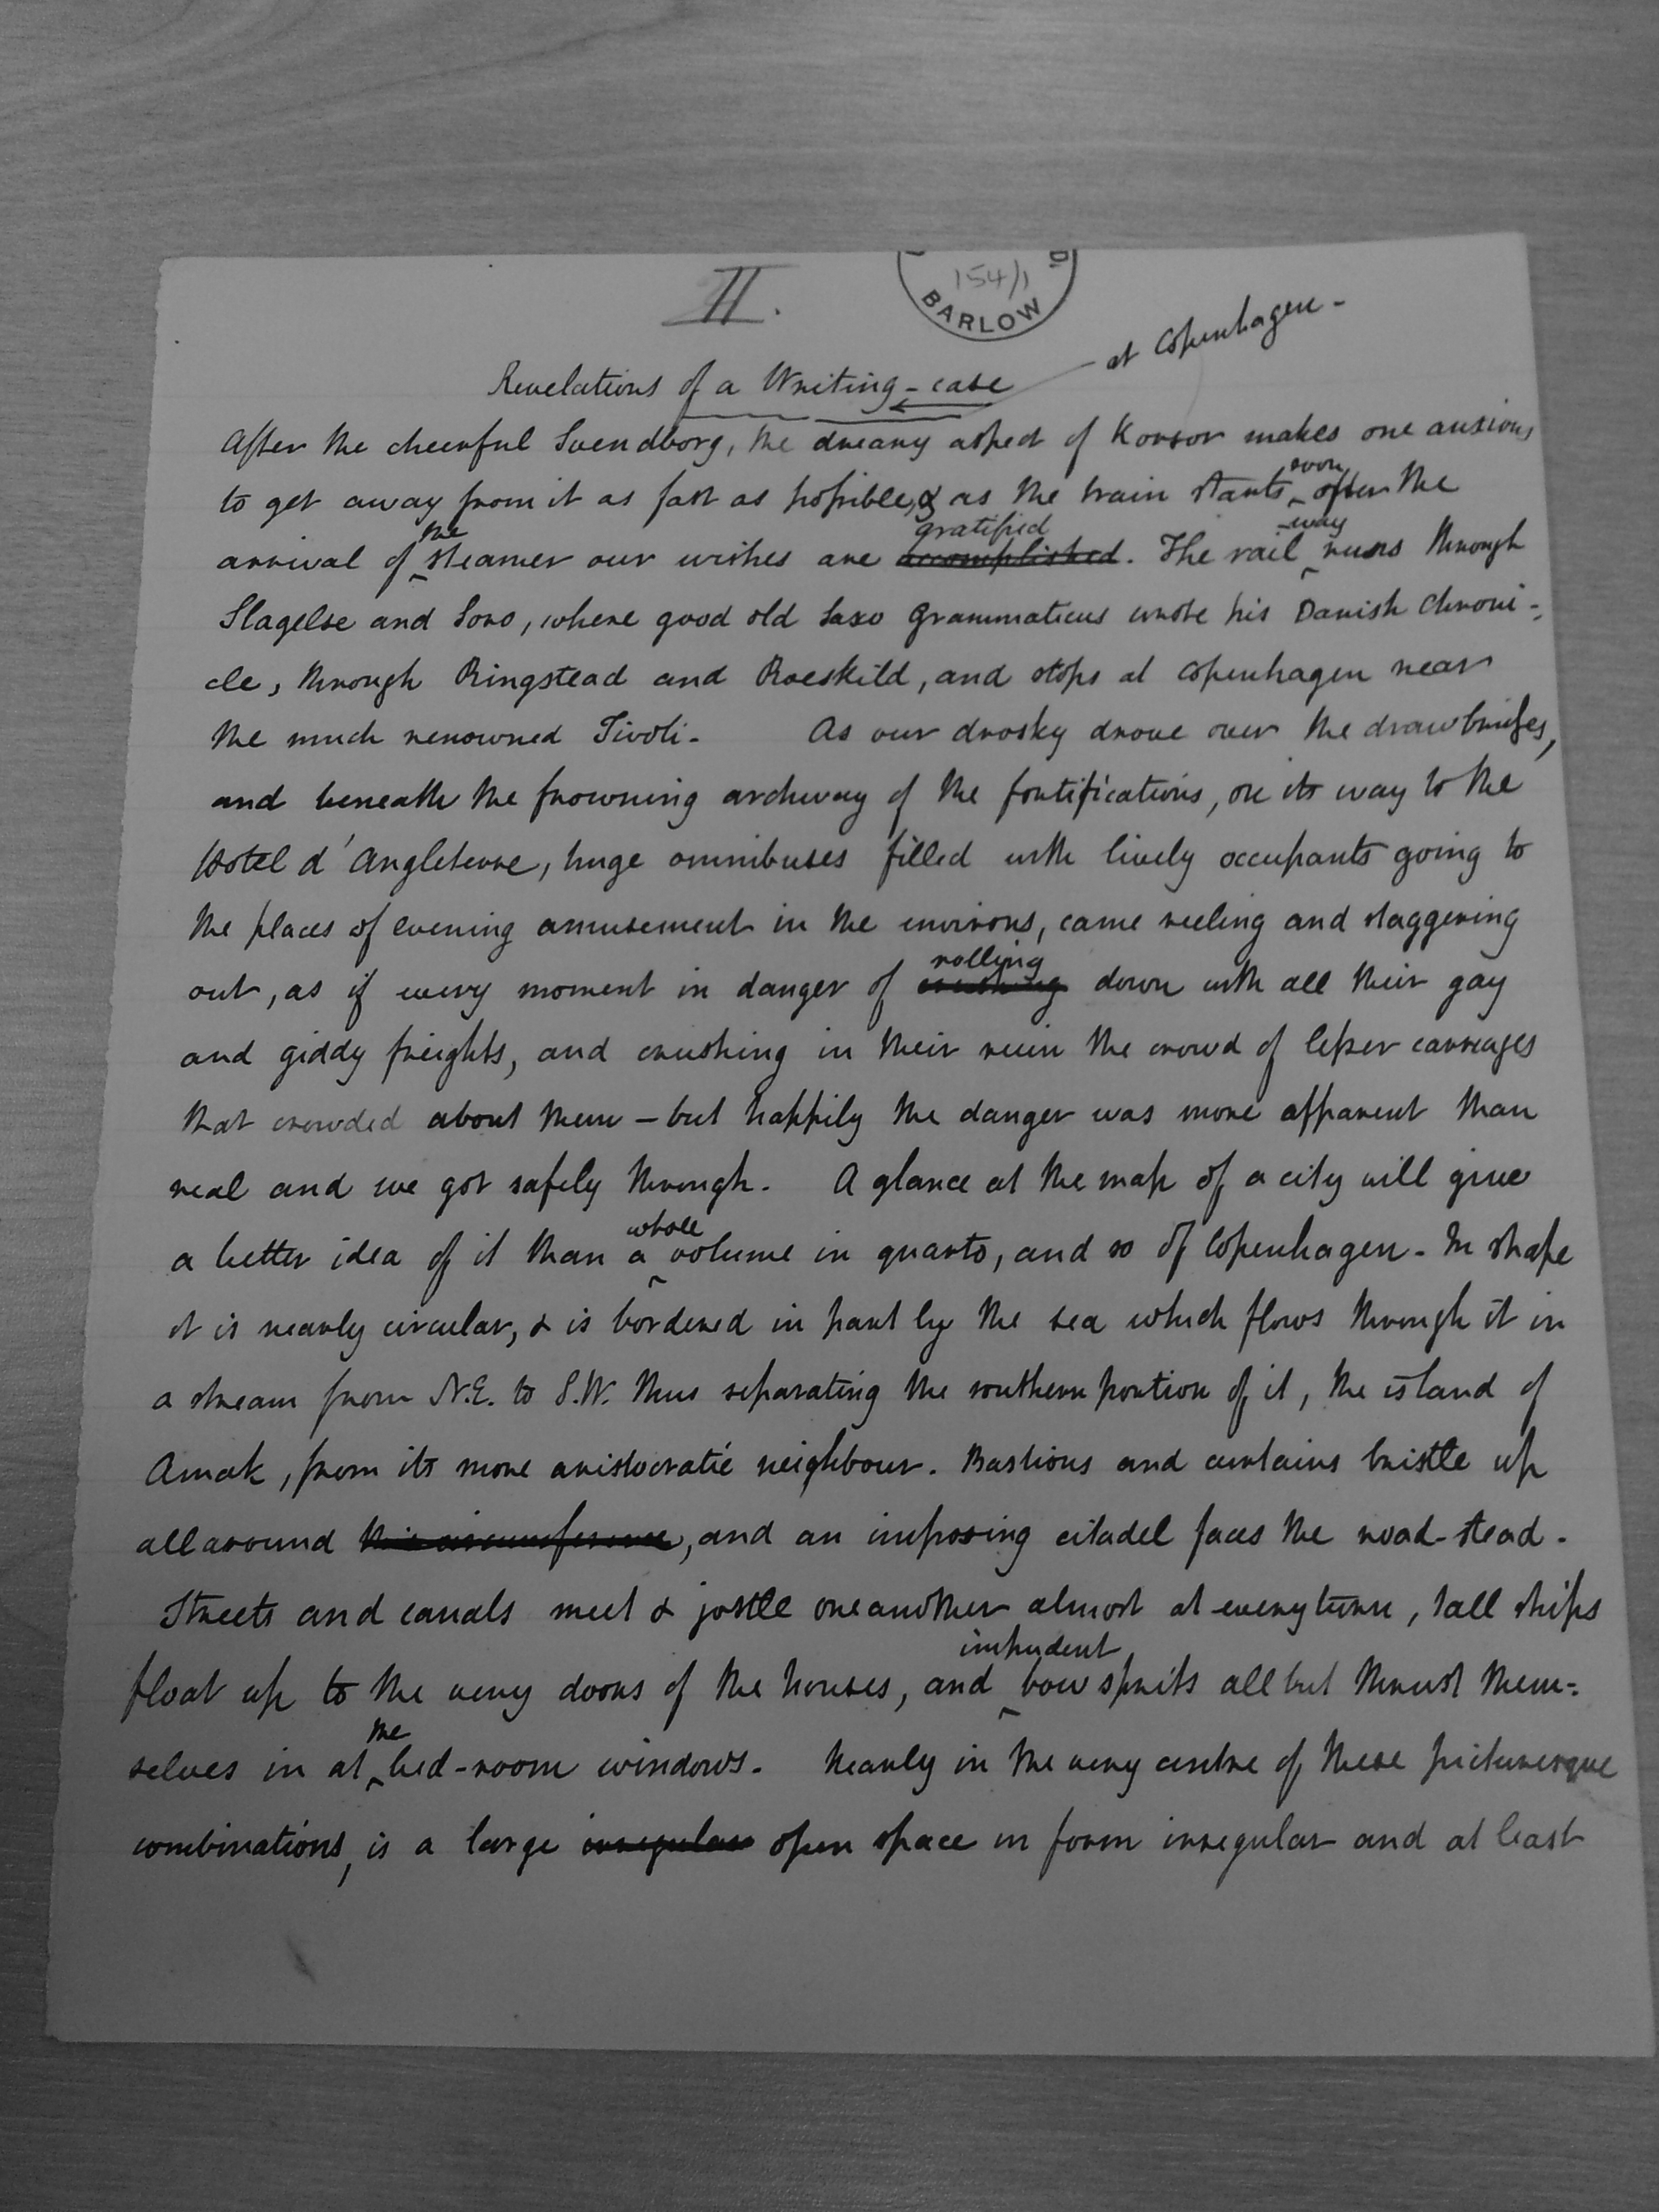 II.
154/1
BARLOW
- at Copenhagen -
Revelations of a Writing-case
After the cheerful Svendborg, the dreary aspect of Korsor makes one anxious
to get away from it as fast as possible, & as the train starts soon after the
arrival of the steamer our wishes are accomplished gratified. The rail-way runs through
Slagelse and Soro, where good old Saxo Grammaticus wrote his Danish Chroni-
cle, through Ringstead and Roeskild, and stops at Copenhagen near
the much renowned Tivoli - As our drosky drove over the drawbridges,
and beneath the frowning archway of the fortifications, on its way to the
Hotel d'Angleterre, huge omnibuses filled with lively occupants going to
the places of evening amusement in the environs, came reeling and staggering
out, as if every moment in danger of rolling down with all their gay
and giddy freights, and crushing in their ruin the crowd of lesser carriages
that crowded about them - but happily the danger was more apparent than
real and we got safely through. A glance at the map of a city will give
a better idea of it than a whole volume in quarto, and so of Copenhagen - In shape
it is nearly circular, & is bordered in part by the sea which flows through it in
a stream from N.E. to S.W. thus separating the southern portion of it, the island of
Amak, from its more aristocratic neighbour. Bastions and curtains bristle up
all around this circumference, and an imposing citadel faces the road-stead.
Streets and canals meet & jostle one another almost at every turn, tall ships
float up to the very doors of the houses, and impudent bowsprits all but thrust them-
selves in at the bed-room windows. Nearly in the very centre of these picturesque
combinations, is a large irregular open space in form irregular and at least